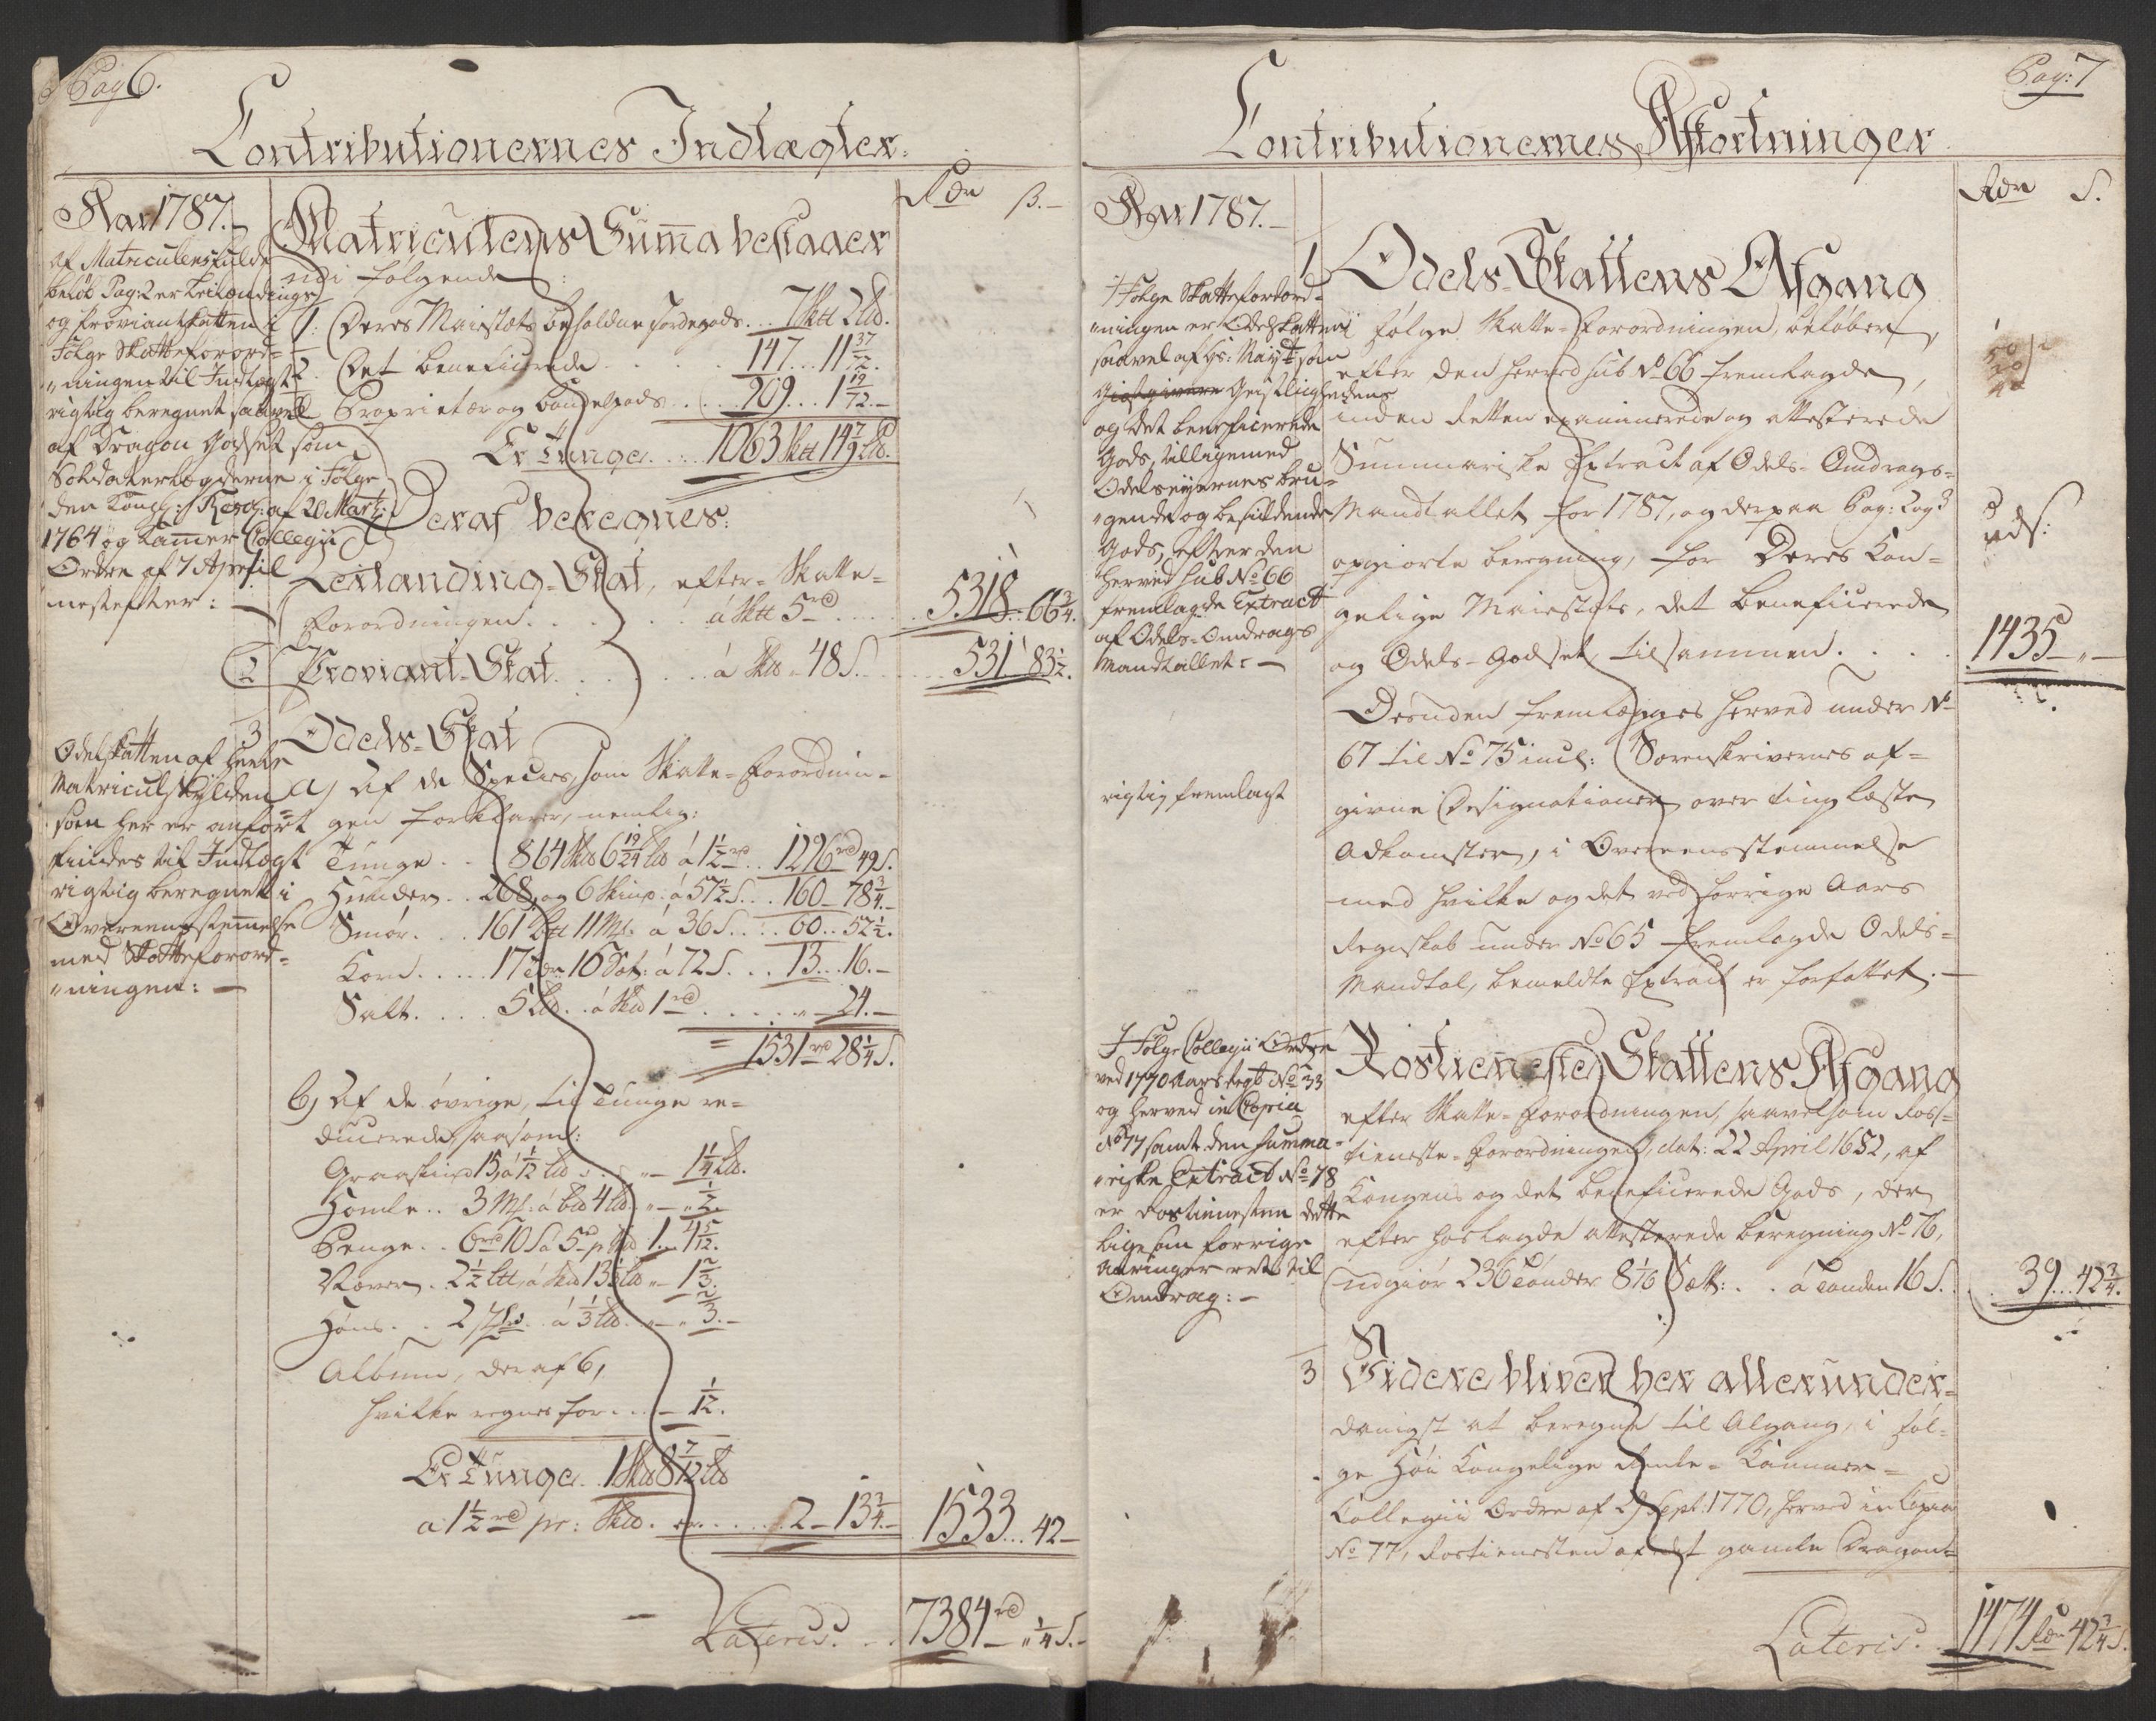 Pag 6.
Contributionernes Indtægter.
Aar 1787.
Af Matriculens fulde
beløb Pag: 2 er Leilændings
og Proviantskatten i
Følge Skatteforord-
ningen til Indtægt
rigtig beregnet, saavel
af Dragon Godset som
Soldaterlægderne i Følge
den Kongl: Resol: af 20 Martz
1764 og Kammer Collegii
Ordre af 7 April
nestefter:
Matriculens Summa bestaaer
udi følgende:
Rdr ß.
1: Deres Maiestæts beholdne Jordegods... 7 Skt 2 Ld.
2. Det beneficerede ..... 147... 11 37/72.
Proprietær og bondegods ..... 909... 1 19/72.
Er Tunge..... 1063 Skt 14 7/9 Ld.
Deraf beregnes:
1. Leilænding-Skat, efter Skatte-
Forordningen ..... á Skt 5 rd ..... 5318.. 66 3/4.
2 Proviant-Skat ..... á Skd 48 S. ..... 531 83 1/2.
3 Odels-Skat
Odelskatten af heele
Matriculskylden
som her er anført
findes til Indtægt
rigtig beregnet i
Overeensstemmelse
med Skatteforord-
ningen:
a) Af de Species, som Skatte-Forordnin-
gen forklarer, nemlig:
Tunge .. 864 Skd 6 19/24 Ld á 1 1/2 rd .. 1296 rd 49 S.
Huuder .. 268, og 6 Skind: á 57 1/2 S... 160 78 3/4.
Smør ... 161 6tt 11 Mk: á 36 S.... 60.. 52 1/2.
Korn ..... 17 tdr 16 Sæt: á 72 S... 13... 16.
Salt .... 5 Ld.. á Skd 1 rd ...... " 24.
1531 rd 28 1/4 S.
b) Af de øvrige, til Tunge re-
ducerede, saasom:
Graaskind 15, á 1/12 Ld .. " 1 1/4 Ld.
Homle.. 3 Mk: á bd 4 Ld. " " 1/2.
Penge.. 6 rd 10 S á 5 rd p Skd 1.. 4 5/12.
Næver. 2 1/2 Ltt, á Skd 13 1/3 Ld " 1 2/3.
Høns.. 2 Stk: á 1/3 Ld. " " 2/3.
Album, deraf 6,
hvilke regnes for ... 1/12.
Er Tunge.. 1 Skd 8 7/12 Ld
á 1 1/2 rd pr: Skd. er ..... 2 13 3/4 1533... 42
Lateris... 7384 rd " 1/4 S.
Pag: 7
Contributionernes Afkortninger
Aar 1787.
Rdr S.
I Følge Skatteforord-
ningen er Odelskatten
saavel af Hs: Mayt: som
Geistlighedens
og det beneficerede
Gods, tilligemed
Odelseyernes bru-
gende og besiddende
Gods, efter den
herved sub No 66
fremlagde Extract
af Odels-Omdrags
Mandtallet:
1 Odels-Skattens Afgang
i følge Skatte-Forordningen, beløber
efter den herved sub No 66 fremlagde,
inden Retten examinerede og attesterede
Summariske Extract af Odels-Omdrags-
Mandtallet for 1787, og derpaa Pag: 2 og 3
opgiorte beregning, for Deres Kon-
gelige Maiestæts, det beneficerede
og Odels-Godset, tilsammen.... 1435 "
Desuden fremlægges herved under No
67 til No 75 incl: Sorenskrivernes af-
givne Designationer over tinglæste
Adkomster, i Overeensstemmelse
med hvilke og det ved forrige Aars
Regnskab under No 65 fremlagde Odels-
Mandtal, bemeldte Extract er forfattet.
rigtig fremlagt
I Følge Collegii Ordre
ved 1770 Aars Regsk No 33
og herved in Copia
No 77 samt den summa-
riske Extract No 78
er Rostienesten dette
ligesom forrige
Aaringer rett til
Omdrag:
Rostieneste Skattens Afgang
efter Skatte-Forordningen, saavelsom Ros-
tieneste-Forordningen, dat: 22 April 1652, af
Kongens og det beneficerede Gods, der
efter hoslagde attesterede beregning No 76,
udgiør 236 Tønder 8 1/16 Sæt:.. á Tønden 16 S... 39.. 42 3/4.
3 Videre bliver her allerunder-
danigst at beregne til Afgang, i føl-
ge Høi Kongelige Rente-Kammer-
Collegii Ordre af 29 Sept: 1770, herved in Copia
No 77, Rostienesten af det gamle Dragon-
Lateris. 1474 Rdr 42 3/4 S.